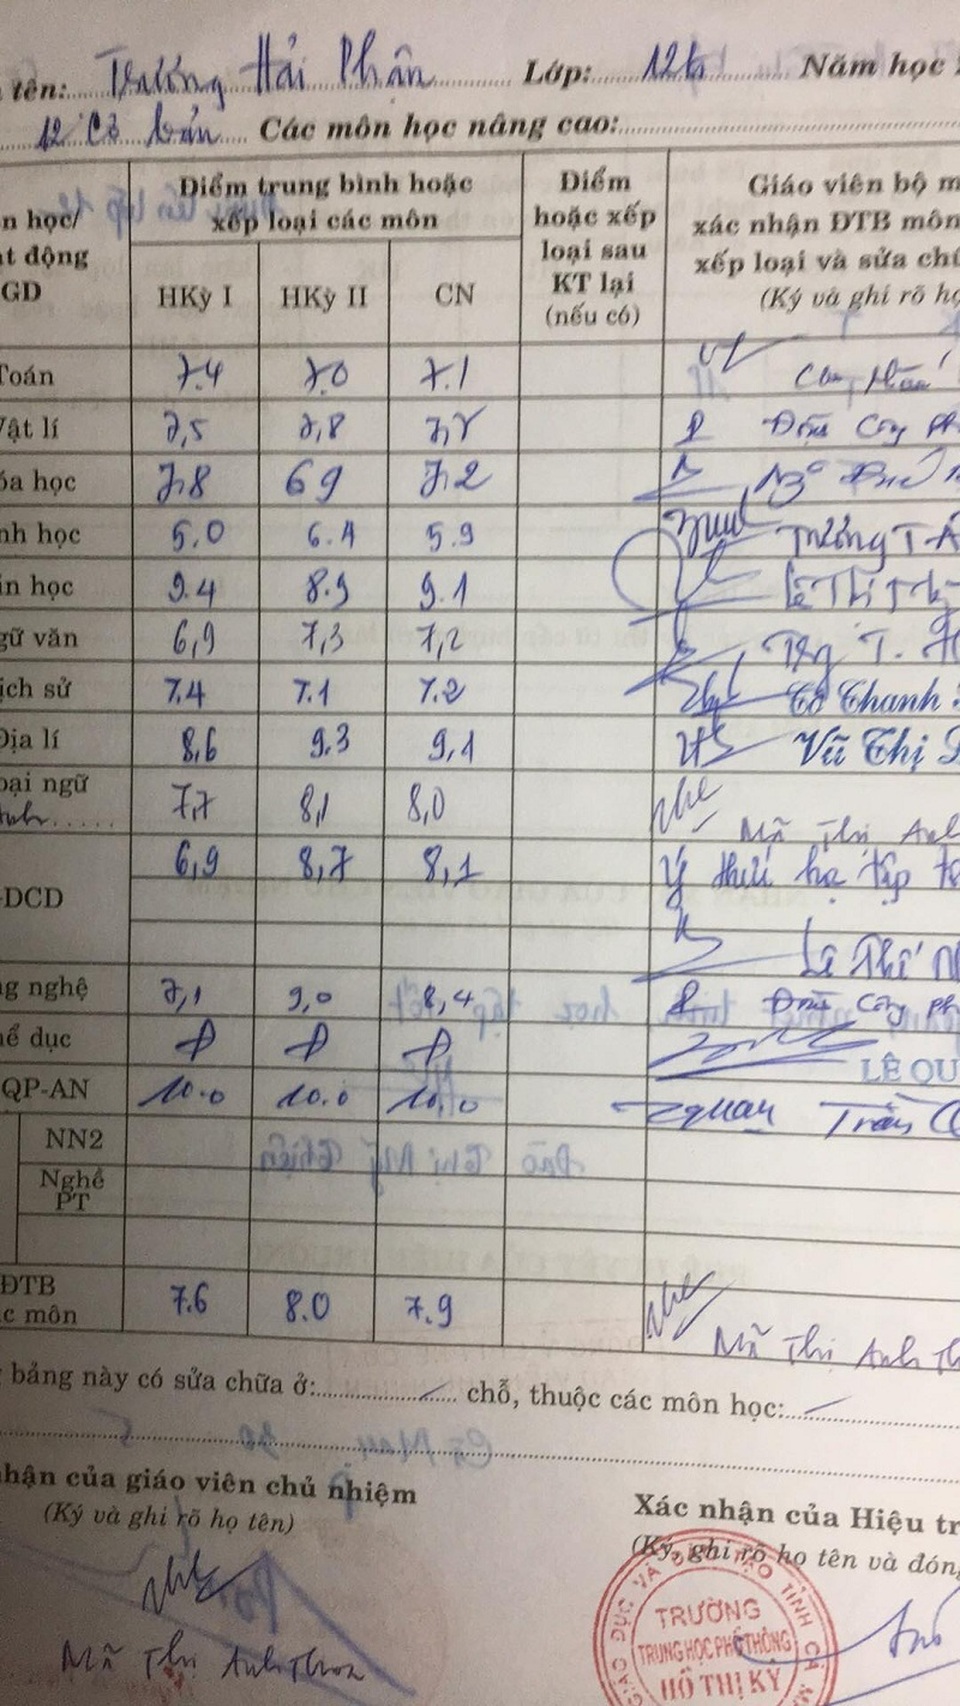 tên: Trương Hải Phận Lớp: 12 Năm học
12 Cơ bản Các môn học nâng cao:
n học/
t động
GD
Điểm trung bình hoặc
xếp loại các môn
HKỳ I HKỳ II CN
Điểm
hoặc xếp
loại sau
KT lại
(nếu có)
Giáo viên bộ m
xác nhận ĐTB môn
xếp loại và sửa chữ
(Ký và ghi rõ họ
Toán 7.4 7.0 7.1
Vật lí 7,5 7,8 7,7 Công
óa học 7.8 6 9 7.2
nh học 5.0 6.4 5.9 Trương T
in học 9.4 8.9 9.1 Lê Thị
gữ văn 6,9 7,3 7,2 T.
ịch sử 7.4 7.1 7.2 Tô Thanh
Địa lí 8,6 9.3 9,1 Vũ Thị
oại ngữ
Anh 7,7 8,1 8,0 Mã Thị Anh
-DCD 6,9 8,7 8,1 Ý thức học tập
Lê Thế
ng nghệ 7,1 9,0 8,4 Công
hể dục Đ Đ Đ LÊ QU
QP-AN 10.0 10.0 10.0 Trần
NN2
Nghề
PT
ĐTB
c môn 7.6 8.0 7.9 Mã Thị Anh Th
bảng này có sửa chữa ở: chỗ, thuộc các môn học:
nhận của giáo viên chủ nhiệm
(Ký và ghi rõ họ tên)
Xác nhận của Hiệu tr
(Ký, ghi rõ họ tên và đón
Mã Thị Anh Thoa
TRƯỜNG
TRUNG HỌC PHỔ THÔNG
HỒ THỊ KỶ